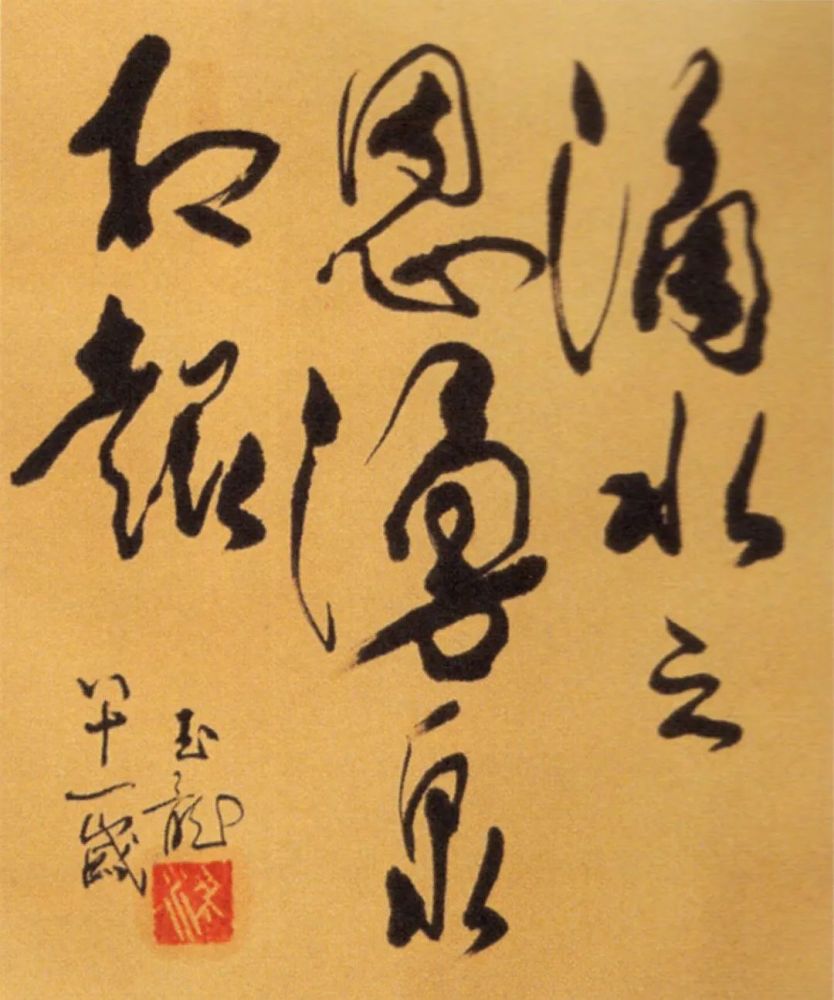 滴水之
恩湧泉
相報
玉龍
八十一歲